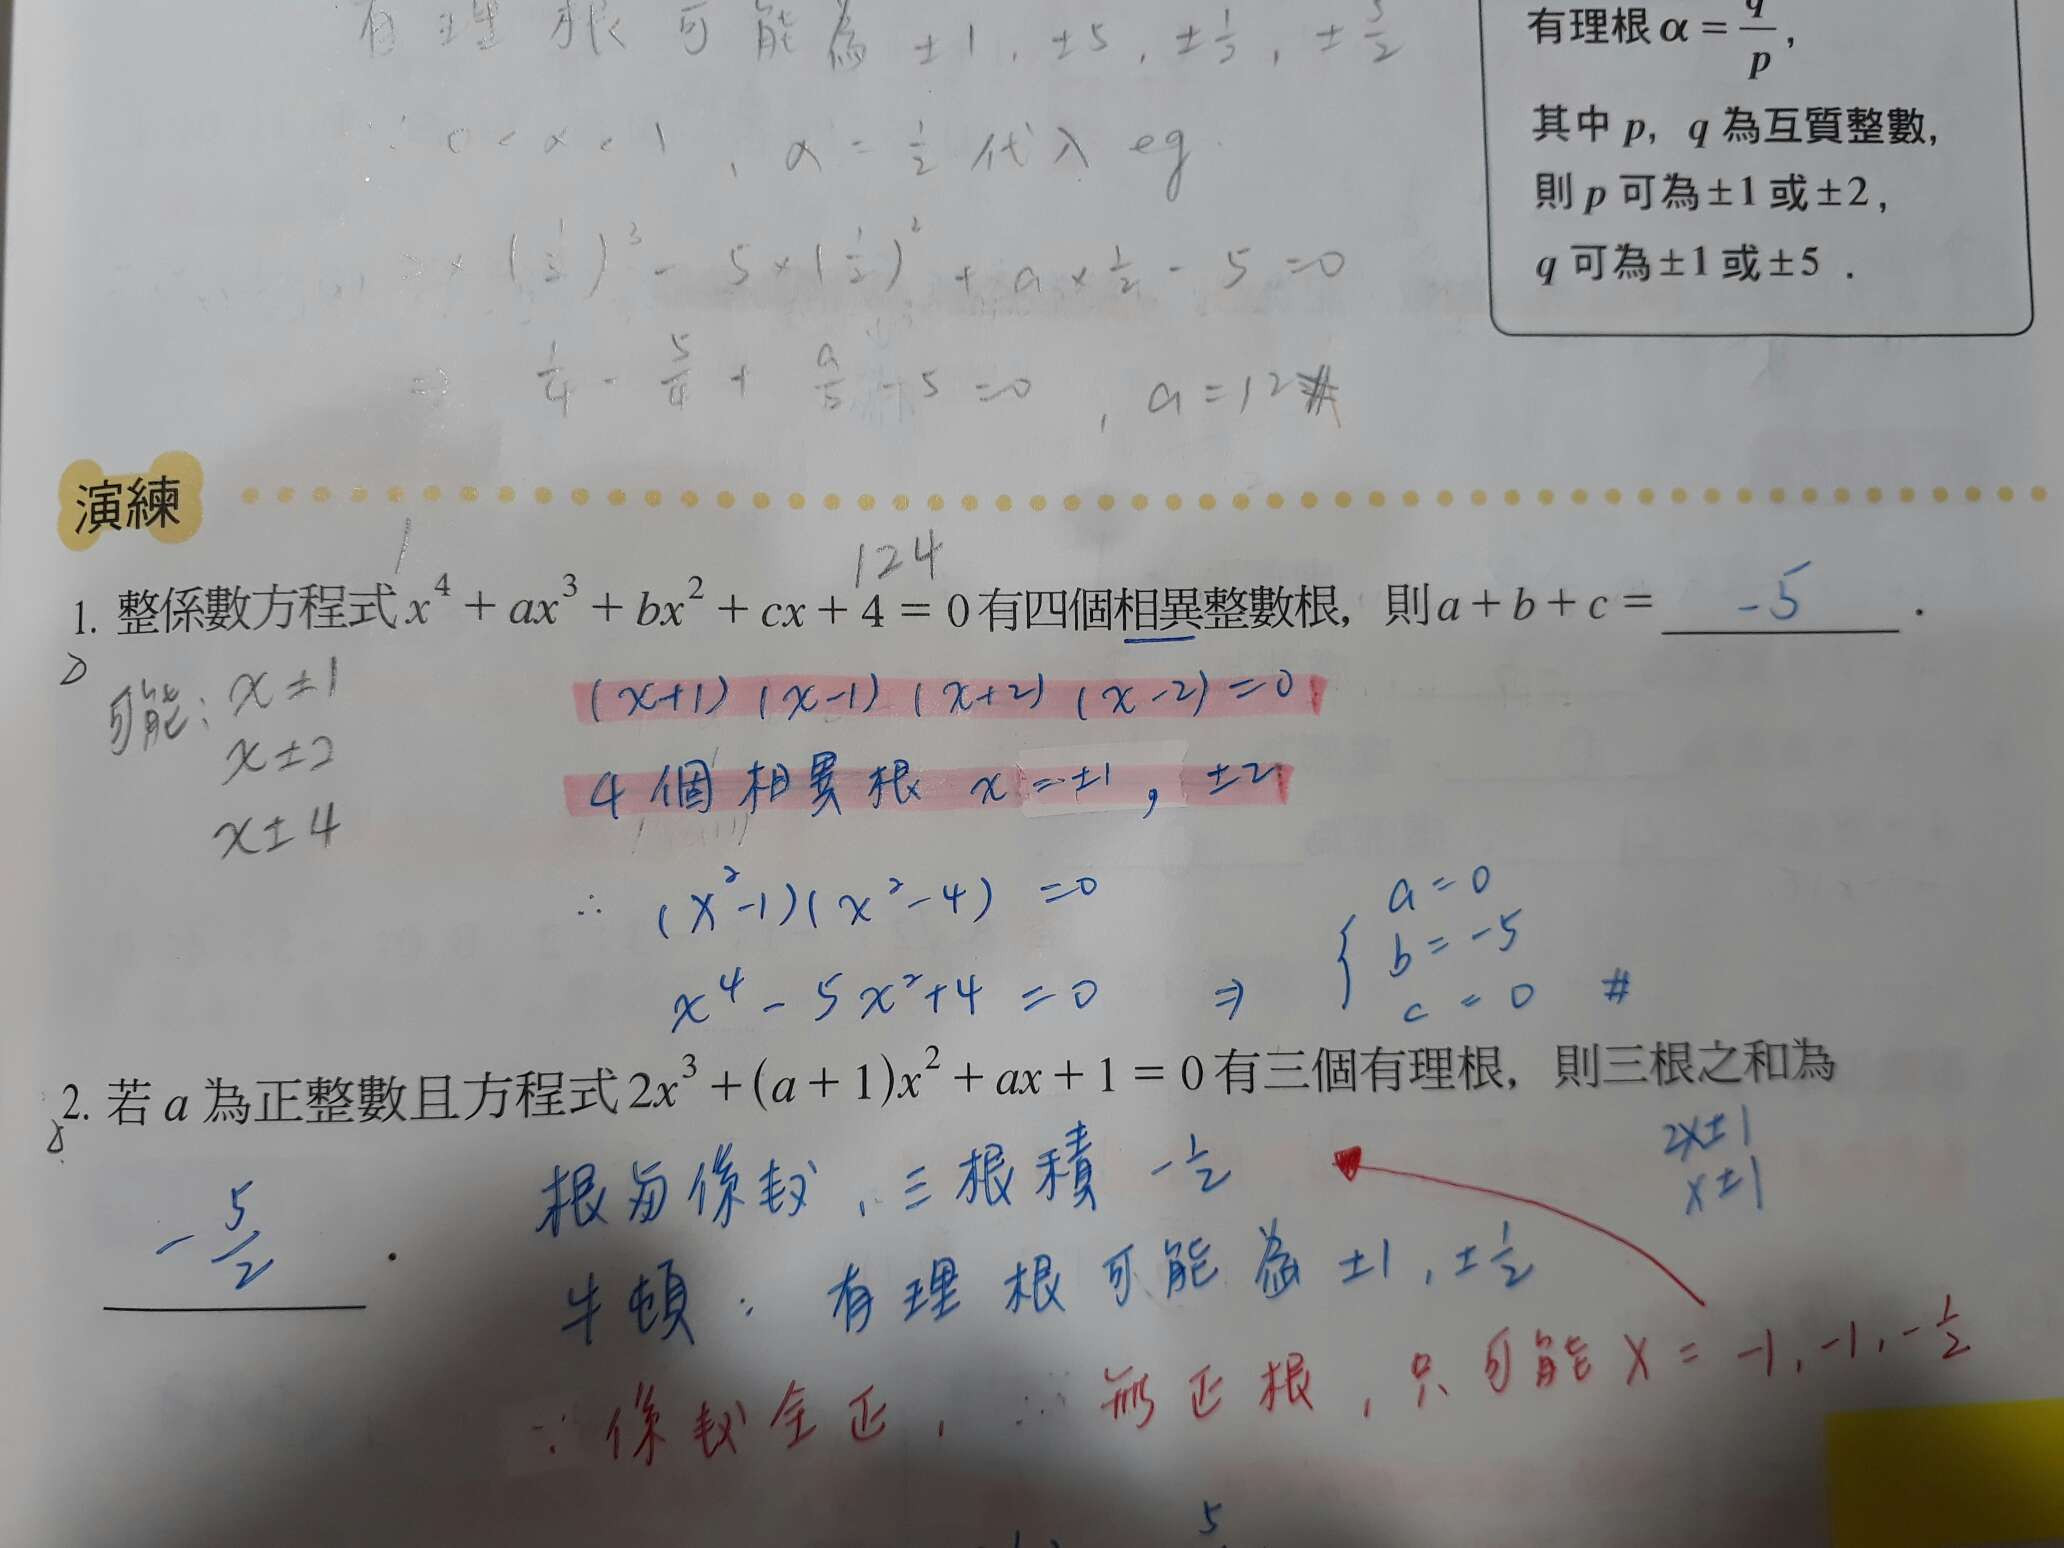 有理根可能為 ±1, ±5, ±1/2, ±5/2
0 < α < 1, α = 1/2 代入 eq
2×(1/2)³ - 5×(1/2)² + a×1/2 - 5 = 0
⇒ 1/4 - 5/4 + a/2 - 5 = 0, a = 12 #
有理根 α = q/p,
其中 p, q 為互質整數,
則 p 可為 ±1 或 ±2,
q 可為 ±1 或 ±5 .
演練
124
1. 整係數方程式 x⁴ + ax³ + bx² + cx + 4 = 0 有四個相異整數根, 則 a + b + c = -5 .
可能: x±1
x±2
x±4
(x+1) (x-1) (x+2) (x-2) = 0
4個相異根 x = ±1, ±2
∴ (x²-1)(x²-4) = 0
x⁴ - 5x² + 4 = 0 ⇒ { a = 0
b = -5
c = 0 #
2. 若 a 為正整數且方程式 2x³ + (a + 1)x² + ax + 1 = 0 有三個有理根, 則三根之和為
-5/2 .
2x±1
x±1
根与係数, 三根積 -1/2
牛頓: 有理根可能為 ±1, ±1/2
∵ 係数全正, ∴ 無正根, 只可能 x = -1, -1, -1/2
5